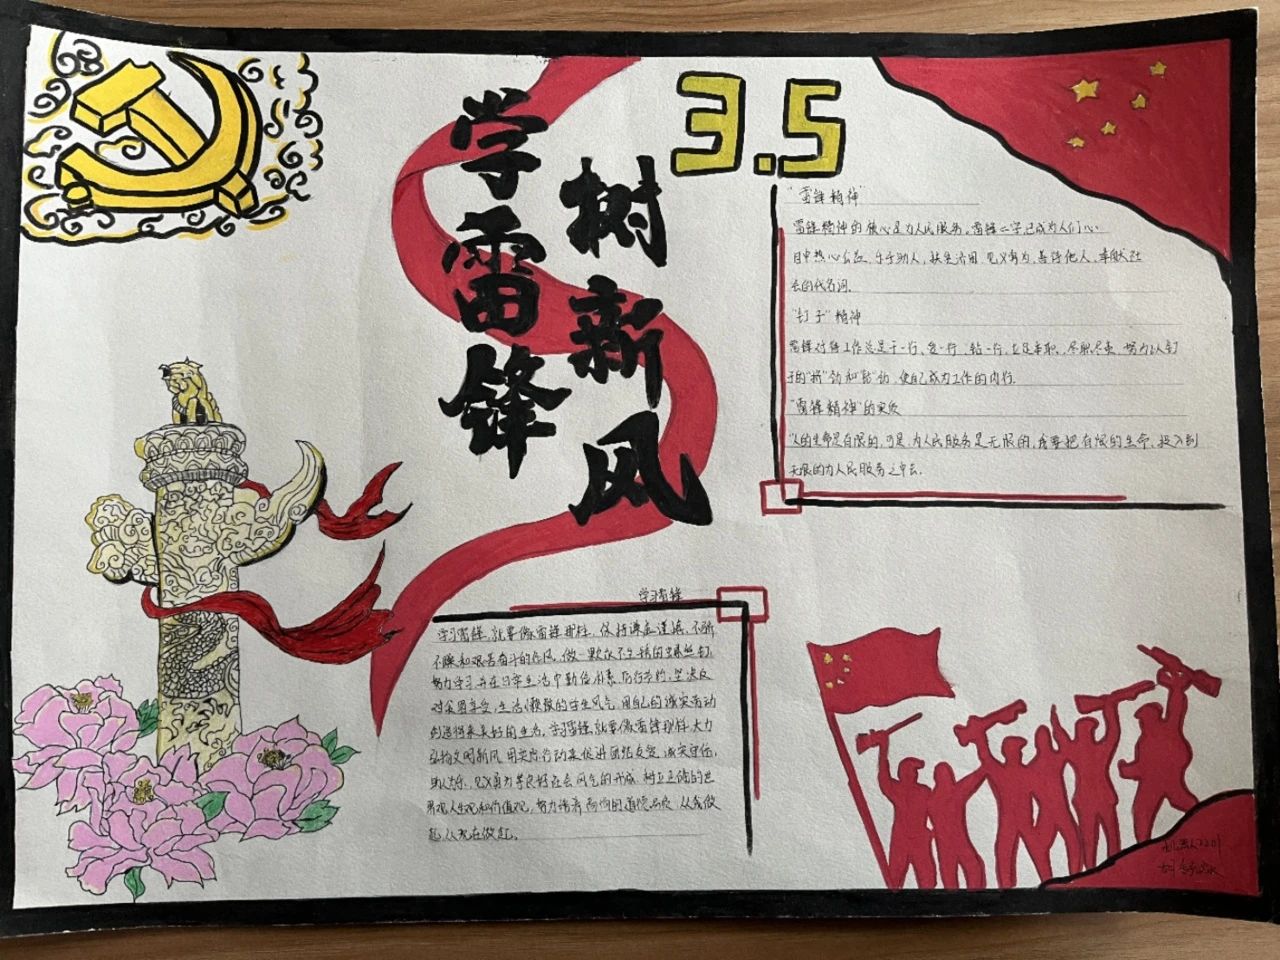 学雷锋
树新风
3.5
"雷锋精神"
雷锋精神的核心是为人民服务。雷锋二字已成为人们心
目中热心公益、乐于助人、扶贫济困、见义勇为、善待他人、奉献社
会的代名词。
"钉子"精神
雷锋对待工作总是干一行、爱一行、钻一行、立足本职、尽职尽责、努力以钉
子的"挤"劲和"钻"劲、使自己成为工作的内行。
"雷锋精神"的实质
"人的生命是有限的,可是,为人民服务是无限的,我要把有限的生命,投入到
无限的为人民服务之中去。
学习雷锋
学习雷锋,就要像雷锋那样,保持谦虚谨慎、不骄
不躁和艰苦奋斗的作风,做一颗永不生锈的螺丝钉,
努力学习并在日常生活中勤俭朴素、厉行节约,坚决反
对贪图享受、生活懒散的寄生风气,用自己的诚实劳动
创造将来美好的生活。学习雷锋,就要像雷锋那样,大力
弘扬文明新风,用实际行动来促进团结友爱、诚实守信、
助人为乐、见义勇为等良好社会风气的形成,树立正确的世
界观人生观和价值观,努力培养高尚的道德品质,从我做
起,从现在做起。
2201